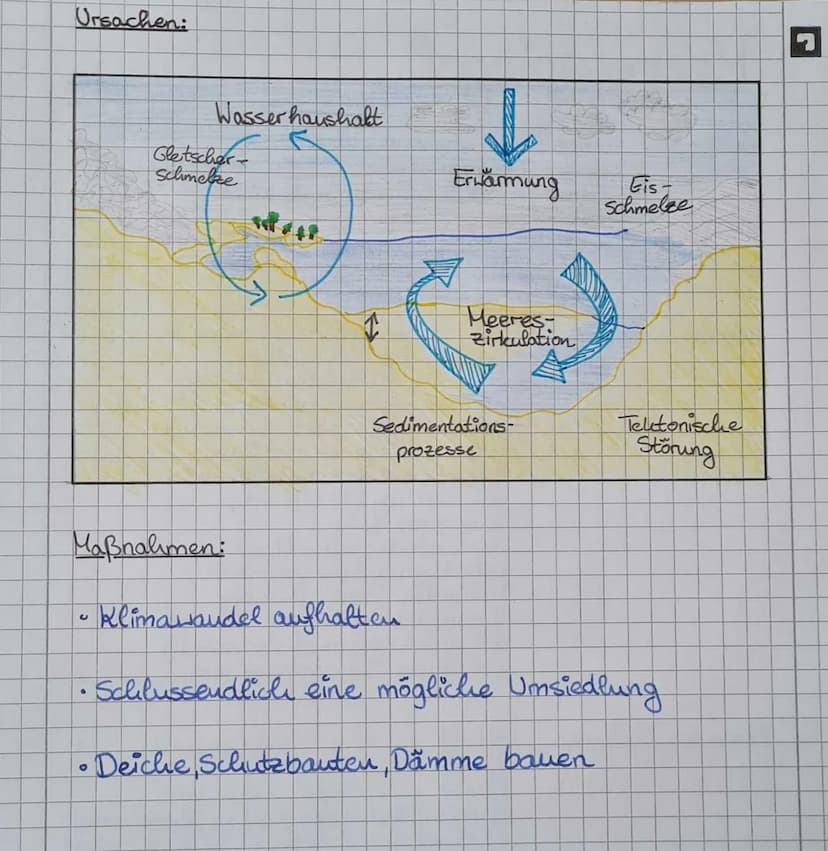 Ursachen:
Wasserhaushalt
Gletscher-
schmelze
Erwärmung
Eis-
schmelze
Meeres-
zirkulation
Sedimentations-
prozesse
Tektonische
Störung
Maßnahmen:
• Klimawandel aufhalten
• Schlussendlich eine mögliche Umsiedlung
• Deiche, Schutzbauten, Dämme bauen